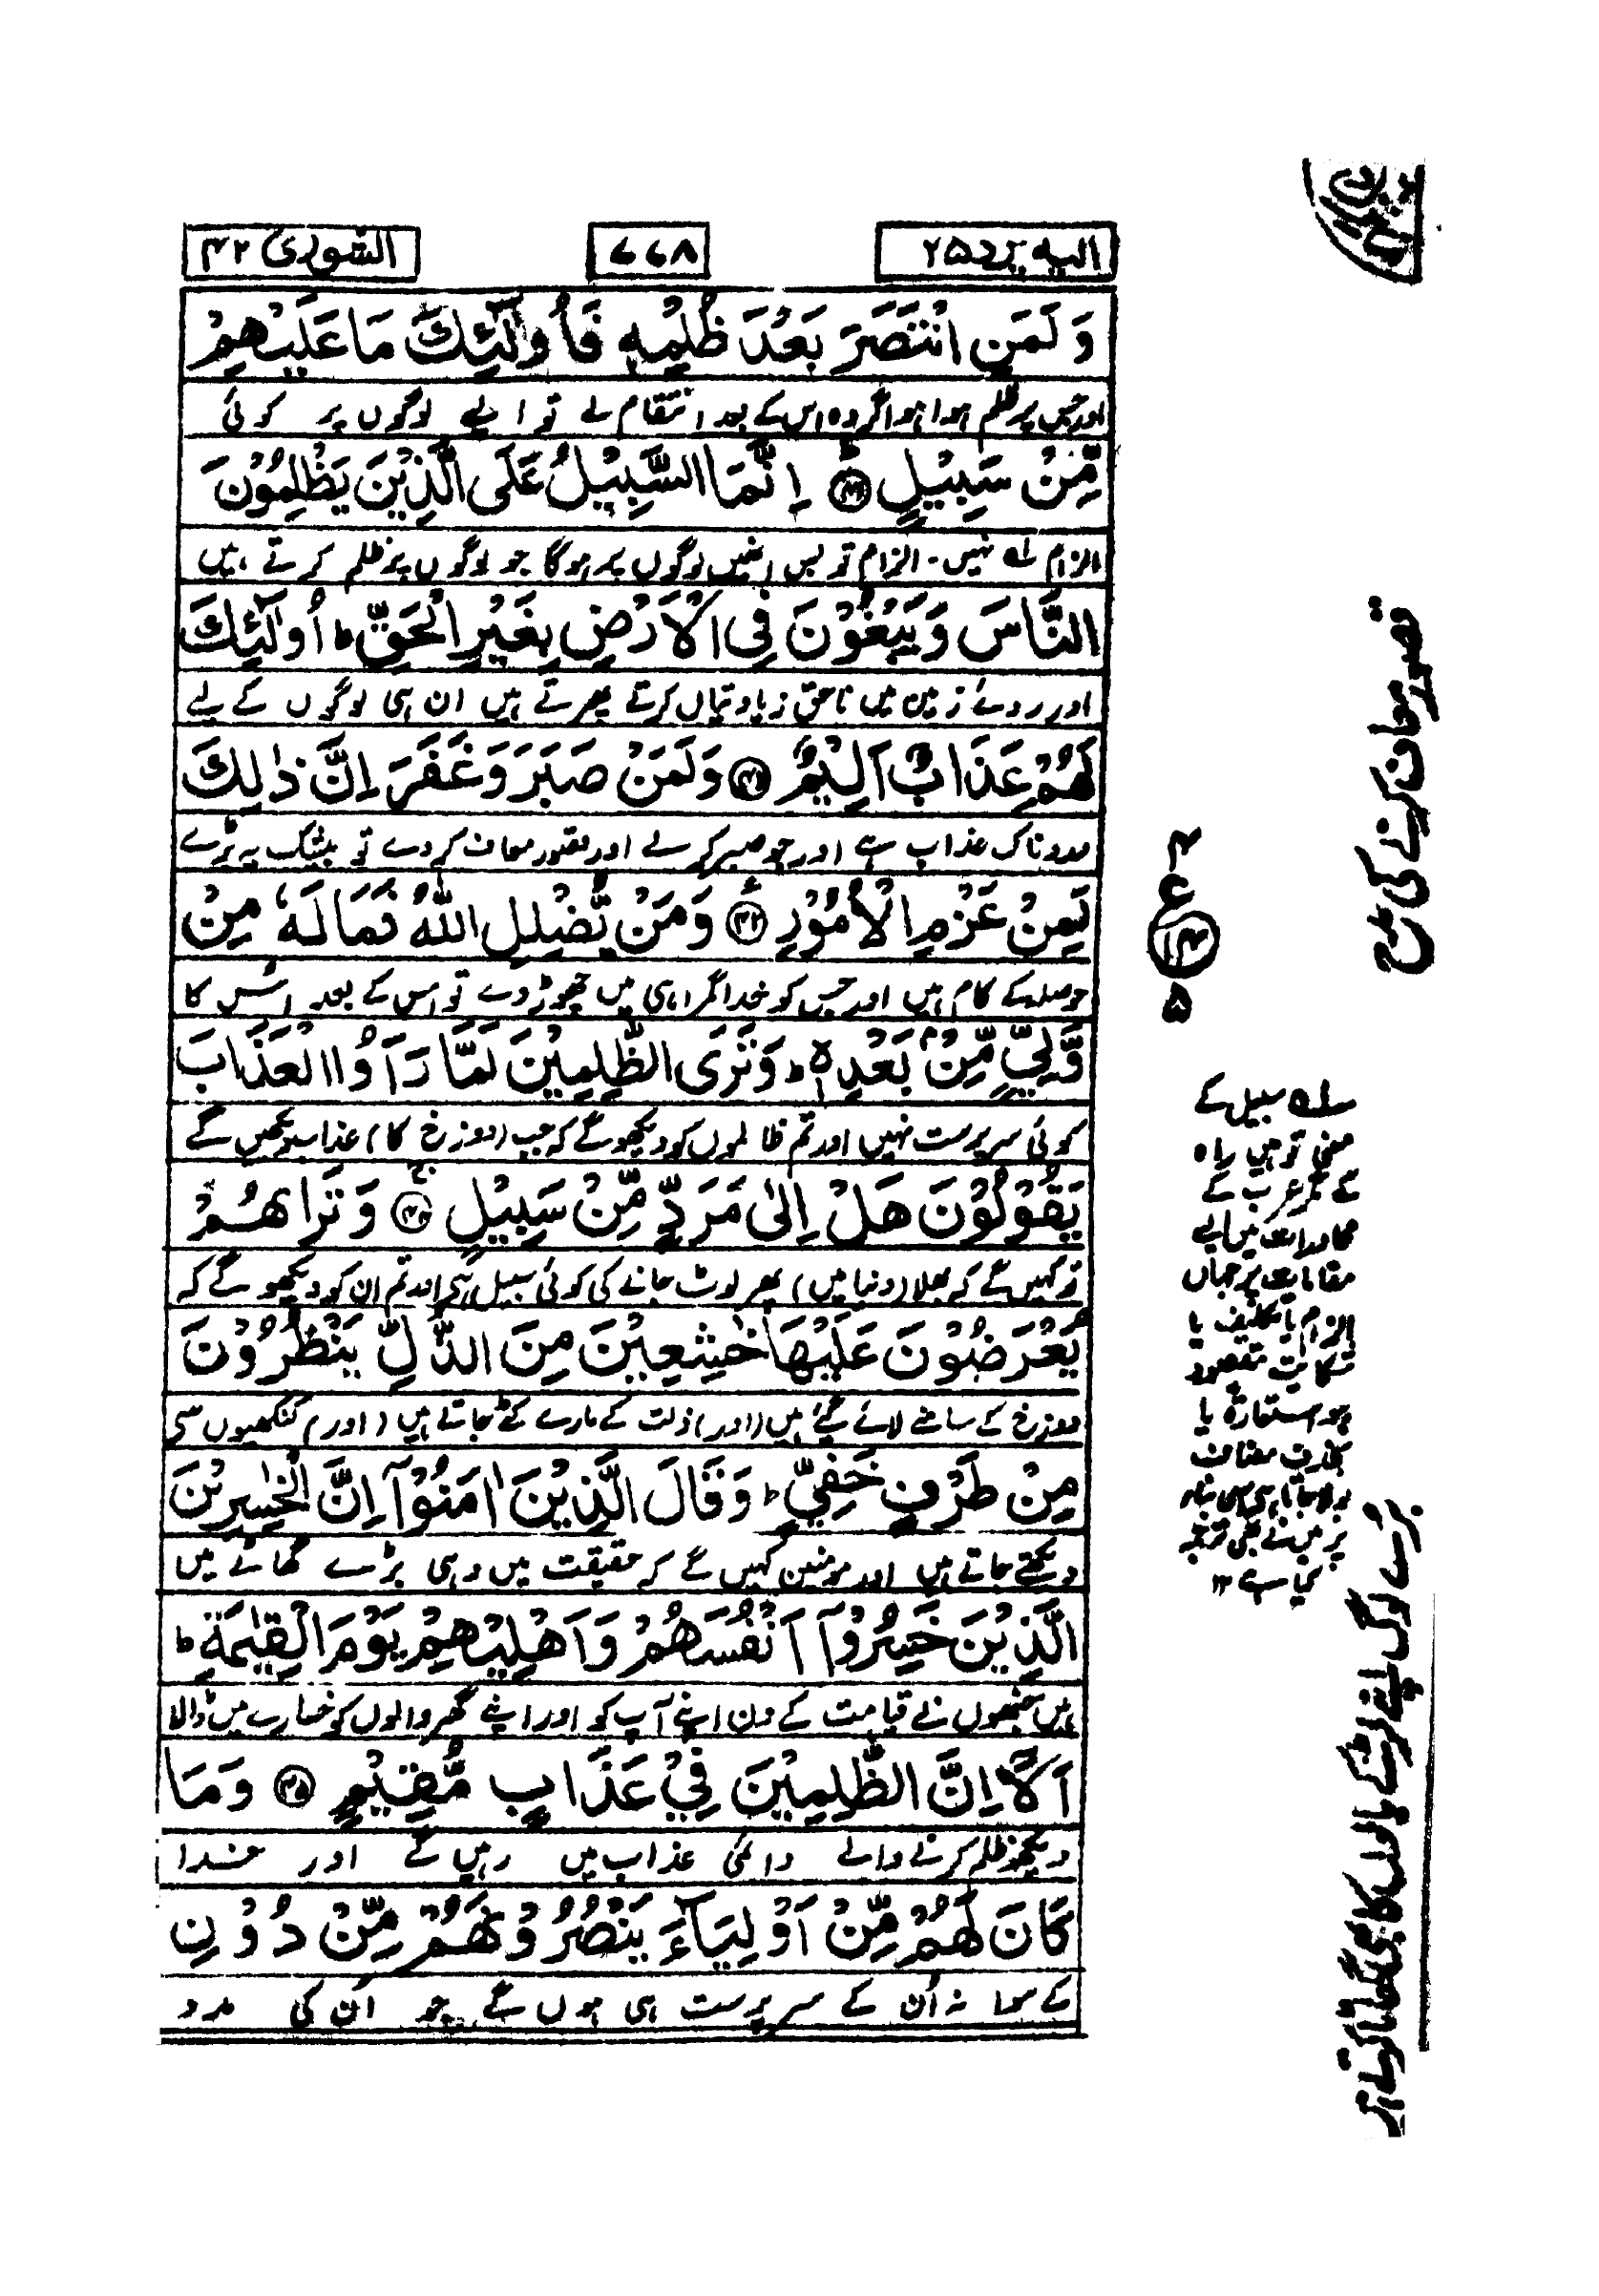 الیہ یرد ۲۵
۷۷۸
الشوریٰ ۴۲
وَلَمَنِ انْتَصَرَ بَعْدَ ظُلْمِهٖ فَاُولٰٓئِكَ مَا عَلَيْهِمْ
اور جس پر ظلم ہوا ہو اگر وہ اس کے بعد انتقام لے تو ایسے لوگوں پر کوئی
مِّنْ سَبِيْلٍ ﴿۴۱﴾ اِنَّمَا السَّبِيْلُ عَلَى الَّذِيْنَ يَظْلِمُوْنَ
الزام نہیں۔ الزام تو بس انھیں لوگوں پر ہوگا جو لوگوں پر ظلم کرتے ہیں
النَّاسَ وَيَبْغُوْنَ فِى الْاَرْضِ بِغَيْرِ الْحَقِّ ؕ اُولٰٓئِكَ
اور روئے زمین میں ناحق زیادتیاں کرتے پھرتے ہیں ان ہی لوگوں کے لیے
لَهُمْ عَذَابٌ اَلِيْمٌ ﴿۴۲﴾ وَلَمَنْ صَبَرَ وَغَفَرَ اِنَّ ذٰلِكَ
دردناک عذاب ہے اور جو صبر کرے اور قصور معاف کر دے تو بیشک یہ بڑے
لَمِنْ عَزْمِ الْاُمُوْرِ ﴿۴۳﴾ وَمَنْ يُّضْلِلِ اللّٰهُ فَمَا لَهٗ مِنْ
حوصلہ کے کام ہیں اور جس کو خدا گمراہی میں چھوڑ دے تو اس کے بعد اس کا
وَّلِيٍّ مِّنْۢ بَعْدِهٖ ؕ وَتَرَى الظّٰلِمِيْنَ لَمَّا رَاَوُا الْعَذَابَ
کوئی سرپرست نہیں اور تم ظالموں کو دیکھو گے کہ جب (دوزخ کا) عذاب دیکھیں گے
يَقُوْلُوْنَ هَلْ اِلٰى مَرَدٍّ مِّنْ سَبِيْلٍ ﴿۴۴﴾ وَتَرٰاهُمْ
تو کہیں گے کہ بھلا (دنیا میں) پھر لوٹ جانے کی کوئی سبیل ہے اور تم ان کو دیکھو گے کہ
يُعْرَضُوْنَ عَلَيْهَا خٰشِعِيْنَ مِنَ الذُّلِّ يَنْظُرُوْنَ
دوزخ کے سامنے لائے گئے ہیں (اور) ذلت کے مارے کٹے جاتے ہیں (اور) کنکھیوں سے
مِنْ طَرْفٍ خَفِيٍّ ؕ وَقَالَ الَّذِيْنَ اٰمَنُوْٓا اِنَّ الْخٰسِرِيْنَ
دیکھتے جاتے ہیں اور مومنین کہیں گے کہ حقیقت میں وہی بڑے گھاٹے میں
الَّذِيْنَ خَسِرُوْٓا اَنْفُسَهُمْ وَاَهْلِيْهِمْ يَوْمَ الْقِيٰمَةِ ؕ
ہیں جنھوں نے قیامت کے دن اپنے آپ کو اور اپنے گھر والوں کو خسارے میں ڈالا
اَلَآ اِنَّ الظّٰلِمِيْنَ فِيْ عَذَابٍ مُّقِيْمٍ ﴿۴۵﴾ وَمَا
دیکھو ظلم کرنے والے دائمی عذاب میں رہیں گے اور خدا
كَانَ لَهُمْ مِّنْ اَوْلِيَآءَ يَنْصُرُوْنَهُمْ مِّنْ دُوْنِ
کے سوا نہ اُن کے سرپرست ہی ہوں گے جو اُن کی مدد
قصور معاف کرنے کی مدح
۴
ع
۱۴
۵
سلہ سبیل کے
معنی تو ہیں راہ
کے مگر عرب کے
محاورات میں ایسے
مقامات پر جہاں
الزام یا تکلیف یا
شکایت مقصود
ہو استعارۃً یا
بحذف مضاف
بولا جاتا ہے اسی بناء
پر میں نے بھی ترجمہ
کیا ہے ۱۲
بڑے لوگ اپنے لڑکے بالوں کا بھی گھاٹا کرتے ہیں